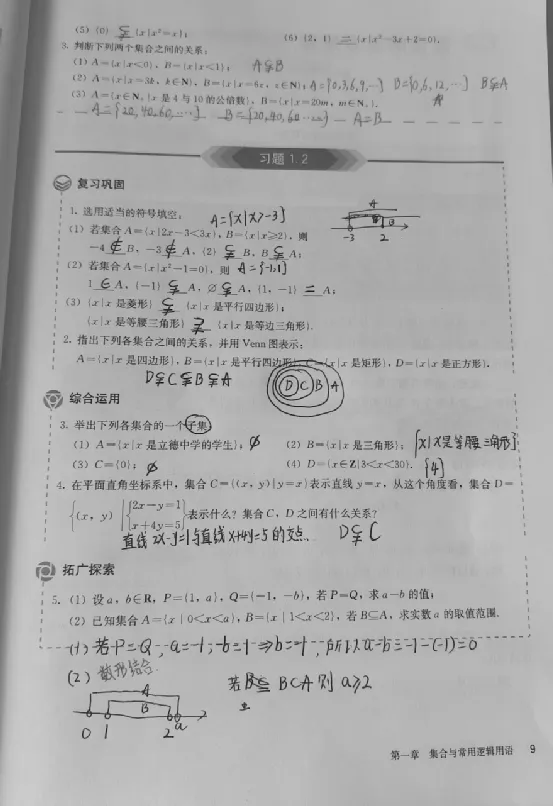 (5) {0} ⫋ {x|x²=x};　(6) {2, 1} = {x|x²-3x+2=0}.
3. 判断下列两个集合之间的关系:
(1) A={x|x<0}, B={x|x<1}; A⫋B
(2) A={x|x=3k, k∈N}, B={x|x=6z, z∈N}; A={0,3,6,9,…} B={0,6,12,…} B⫋A
(3) A={x∈N₊|x是4与10的公倍数}, B={x|x=20m, m∈N₊}.
A={20,40,60,…} B={20,40,60…} A=B
习题 1.2
复习巩固
1. 选用适当的符号填空: A={x|x>-3}
(1) 若集合A={x|2x-3<3x}, B={x|x≥2}, 则
-4 ∉ B, -3 ∉ A, {2} ⫋ B, B ⫋ A;
A B
-3 2
(2) 若集合A={x|x²-1=0}, 则 A={-1,1}
1 ∈ A, {-1} ⫋ A, ∅ ⫋ A, {1, -1} = A;
(3) {x|x是菱形} ⫋ {x|x是平行四边形};
{x|x是等腰三角形} ⫌ {x|x是等边三角形}.
2. 指出下列各集合之间的关系, 并用Venn图表示:
A={x|x是四边形}, B={x|x是平行四边形}, C={x|x是矩形}, D={x|x是正方形}.
D⫋C⫋B⫋A
D C B A
综合运用
3. 举出下列各集合的一个子集:
(1) A={x|x是立德中学的学生}; ∅ (2) B={x|x是三角形}; {x|x是等腰三角形}
(3) C={0}; ∅ (4) D={x∈Z|3<x<30}. {4}
4. 在平面直角坐标系中, 集合C={(x, y)|y=x}表示直线y=x, 从这个角度看, 集合D=
{(x, y)|{2x-y=1
x+4y=5}表示什么? 集合C, D之间有什么关系?
直线2x-y=1与直线x+4y=5的交点. D⫋C
拓广探索
5. (1) 设a, b∈R, P={1, a}, Q={-1, -b}, 若P=Q, 求a-b的值;
(2) 已知集合A={x|0<x<a}, B={x|1<x<2}, 若B⊆A, 求实数a的取值范围.
(1) 若P=Q, a=-1, -b=1⇒b=-1, 所以a-b=-1-(-1)=0
(2) 数形结合. 若 B⊆A则 a≥2
A
B
0 1 2 a
第一章 集合与常用逻辑用语 9